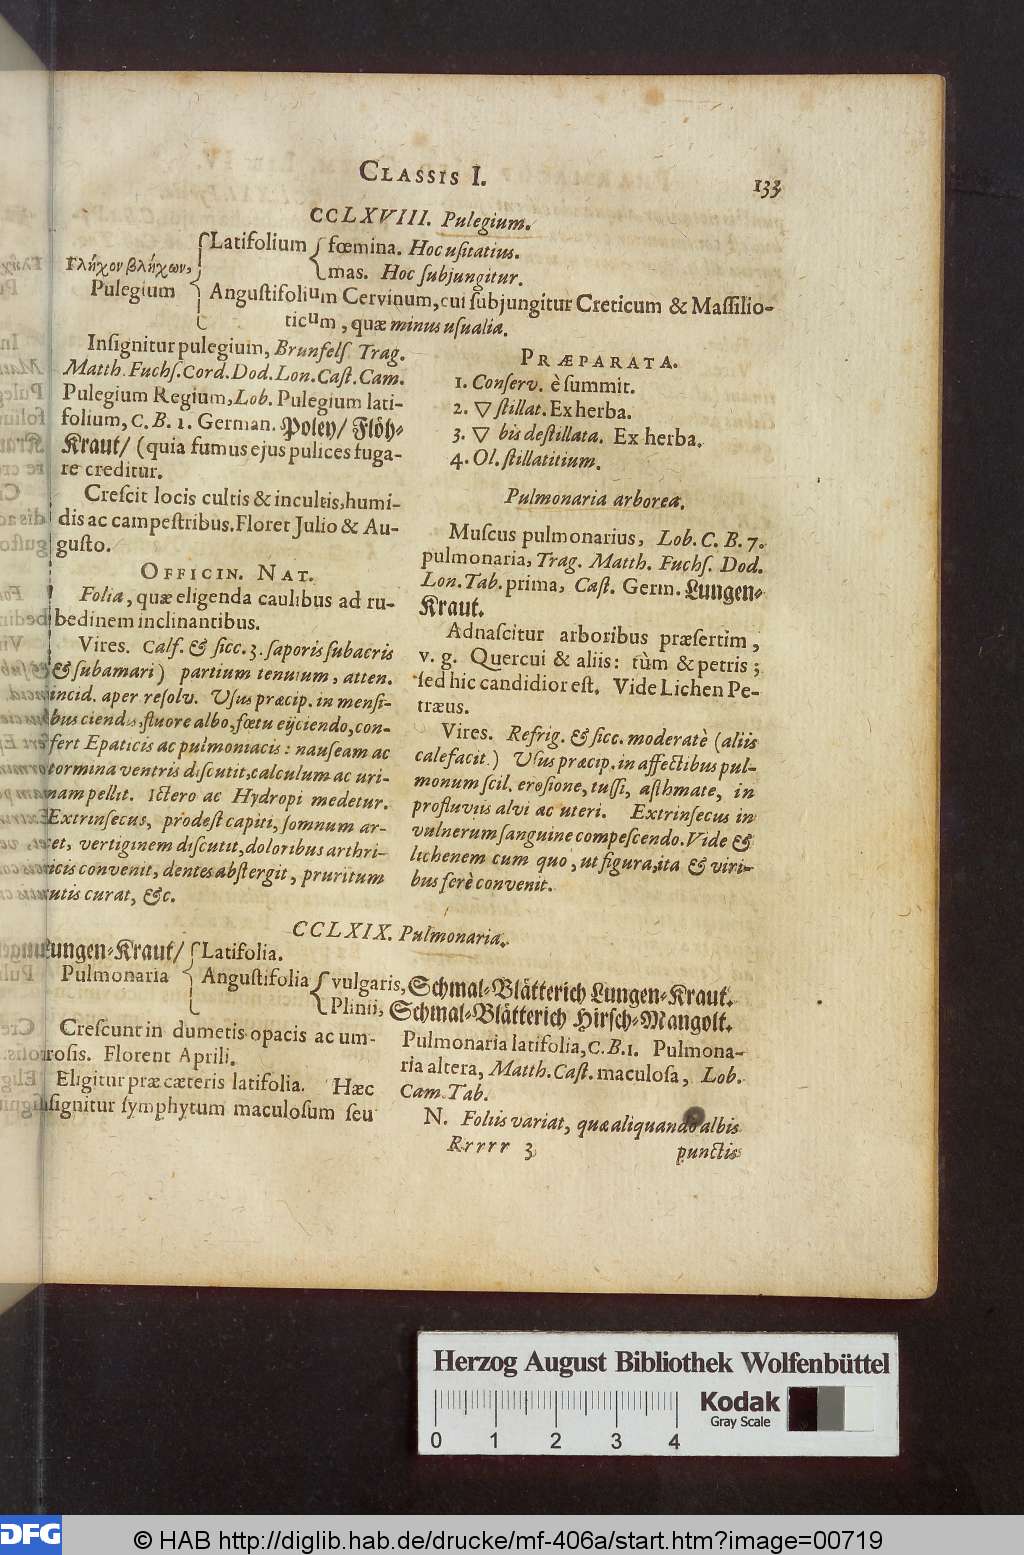 CLASSIS I.
133
CCLXVIII. Pulegium.
Γλήχον βλήχων,
Pulegium
Latifolium
fœmina. Hoc uſitatius.
mas. Hoc ſubjungitur.
Anguſtifolium Cervinum, cui ſubjungitur Creticum & Maſſilio-
ticum, quæ minus uſualia.
Inſignitur pulegium, Brunfelſ. Trag.
Matth. Fuchſ. Cord. Dod. Lon. Caſt. Cam.
Pulegium Regium, Lob. Pulegium lati-
folium, C. B. 1. German. Poley/ Flöh-
Kraut/ (quia fumus ejus pulices fuga-
re creditur.
Creſcit locis cultis & incultis, humi-
dis ac campeſtribus. Floret Julio & Au-
guſto.
OFFICIN. NAT.
Folia, quæ eligenda caulibus ad ru-
bedinem inclinantibus.
Vires. Calf. & ſicc. 3. ſaporis ſubacris
(& ſubamari) partium tenuium, atten.
incid. aper reſolv. Uſus præcip. in menſi-
bus ciendis, fluore albo, fœtu eijciendo, con-
fert Epaticis ac pulmoniacis: nauſeam ac
tormina ventris diſcutit, calculum ac uri-
nam pellit. Ictero ac Hydropi medetur.
Extrinſecus, prodeſt capiti, ſomnum ar-
cet, vertiginem diſcutit, doloribus arthri-
ticis convenit, dentes abſtergit, pruritum
cutis curat, &c.
PRÆPARATA.
1. Conſerv. è ſummit.
2. ▽ ſtillat. Ex herba.
3. ▽ bis deſtillata. Ex herba.
4. Ol. ſtillatitium.
Pulmonaria arborea.
Muſcus pulmonarius, Lob. C. B. 7.
pulmonaria, Trag. Matth. Fuchſ. Dod.
Lon. Tab. prima, Caſt. Germ. Lungen-
Kraut.
Adnaſcitur arboribus præſertim,
v. g. Quercui & aliis: tùm & petris;
ſed hic candidior eſt. Vide Lichen Pe-
træus.
Vires. Refrig. & ſicc. moderatè (aliis
calefacit.) Uſus præcip. in affectibus pul-
monum ſcil. eroſione, tuſſi, aſthmate, in
profluviis alvi ac uteri. Extrinſecus in
vulnerum ſanguine compeſcendo. Vide &
lichenem cum quo, ut figura, ita & viri-
bus ferè convenit.
CCLXIX. Pulmonaria.
Lungen-Kraut/
Pulmonaria
Latifolia.
Anguſtifolia
vulgaris, Schmal-Blätterich Lungen-Kraut.
Plinii, Schmal-Blätterich Hirſch-Mangolt.
Creſcunt in dumetis opacis ac um-
broſis. Florent Aprili.
Eligitur præ cæteris latifolia. Hæc
inſignitur ſymphytum maculoſum ſeu
Pulmonaria latifolia, C. B. 1. Pulmona-
ria altera, Matth. Caſt. maculoſa, Lob.
Cam. Tab.
N. Foliis variat, quæ aliquando albis
Rrrrr 3
punctis
Herzog August Bibliothek Wolfenbüttel
Kodak
Gray Scale
0 1 2 3 4
DFG
© HAB http://diglib.hab.de/drucke/mf-406a/start.htm?image=00719